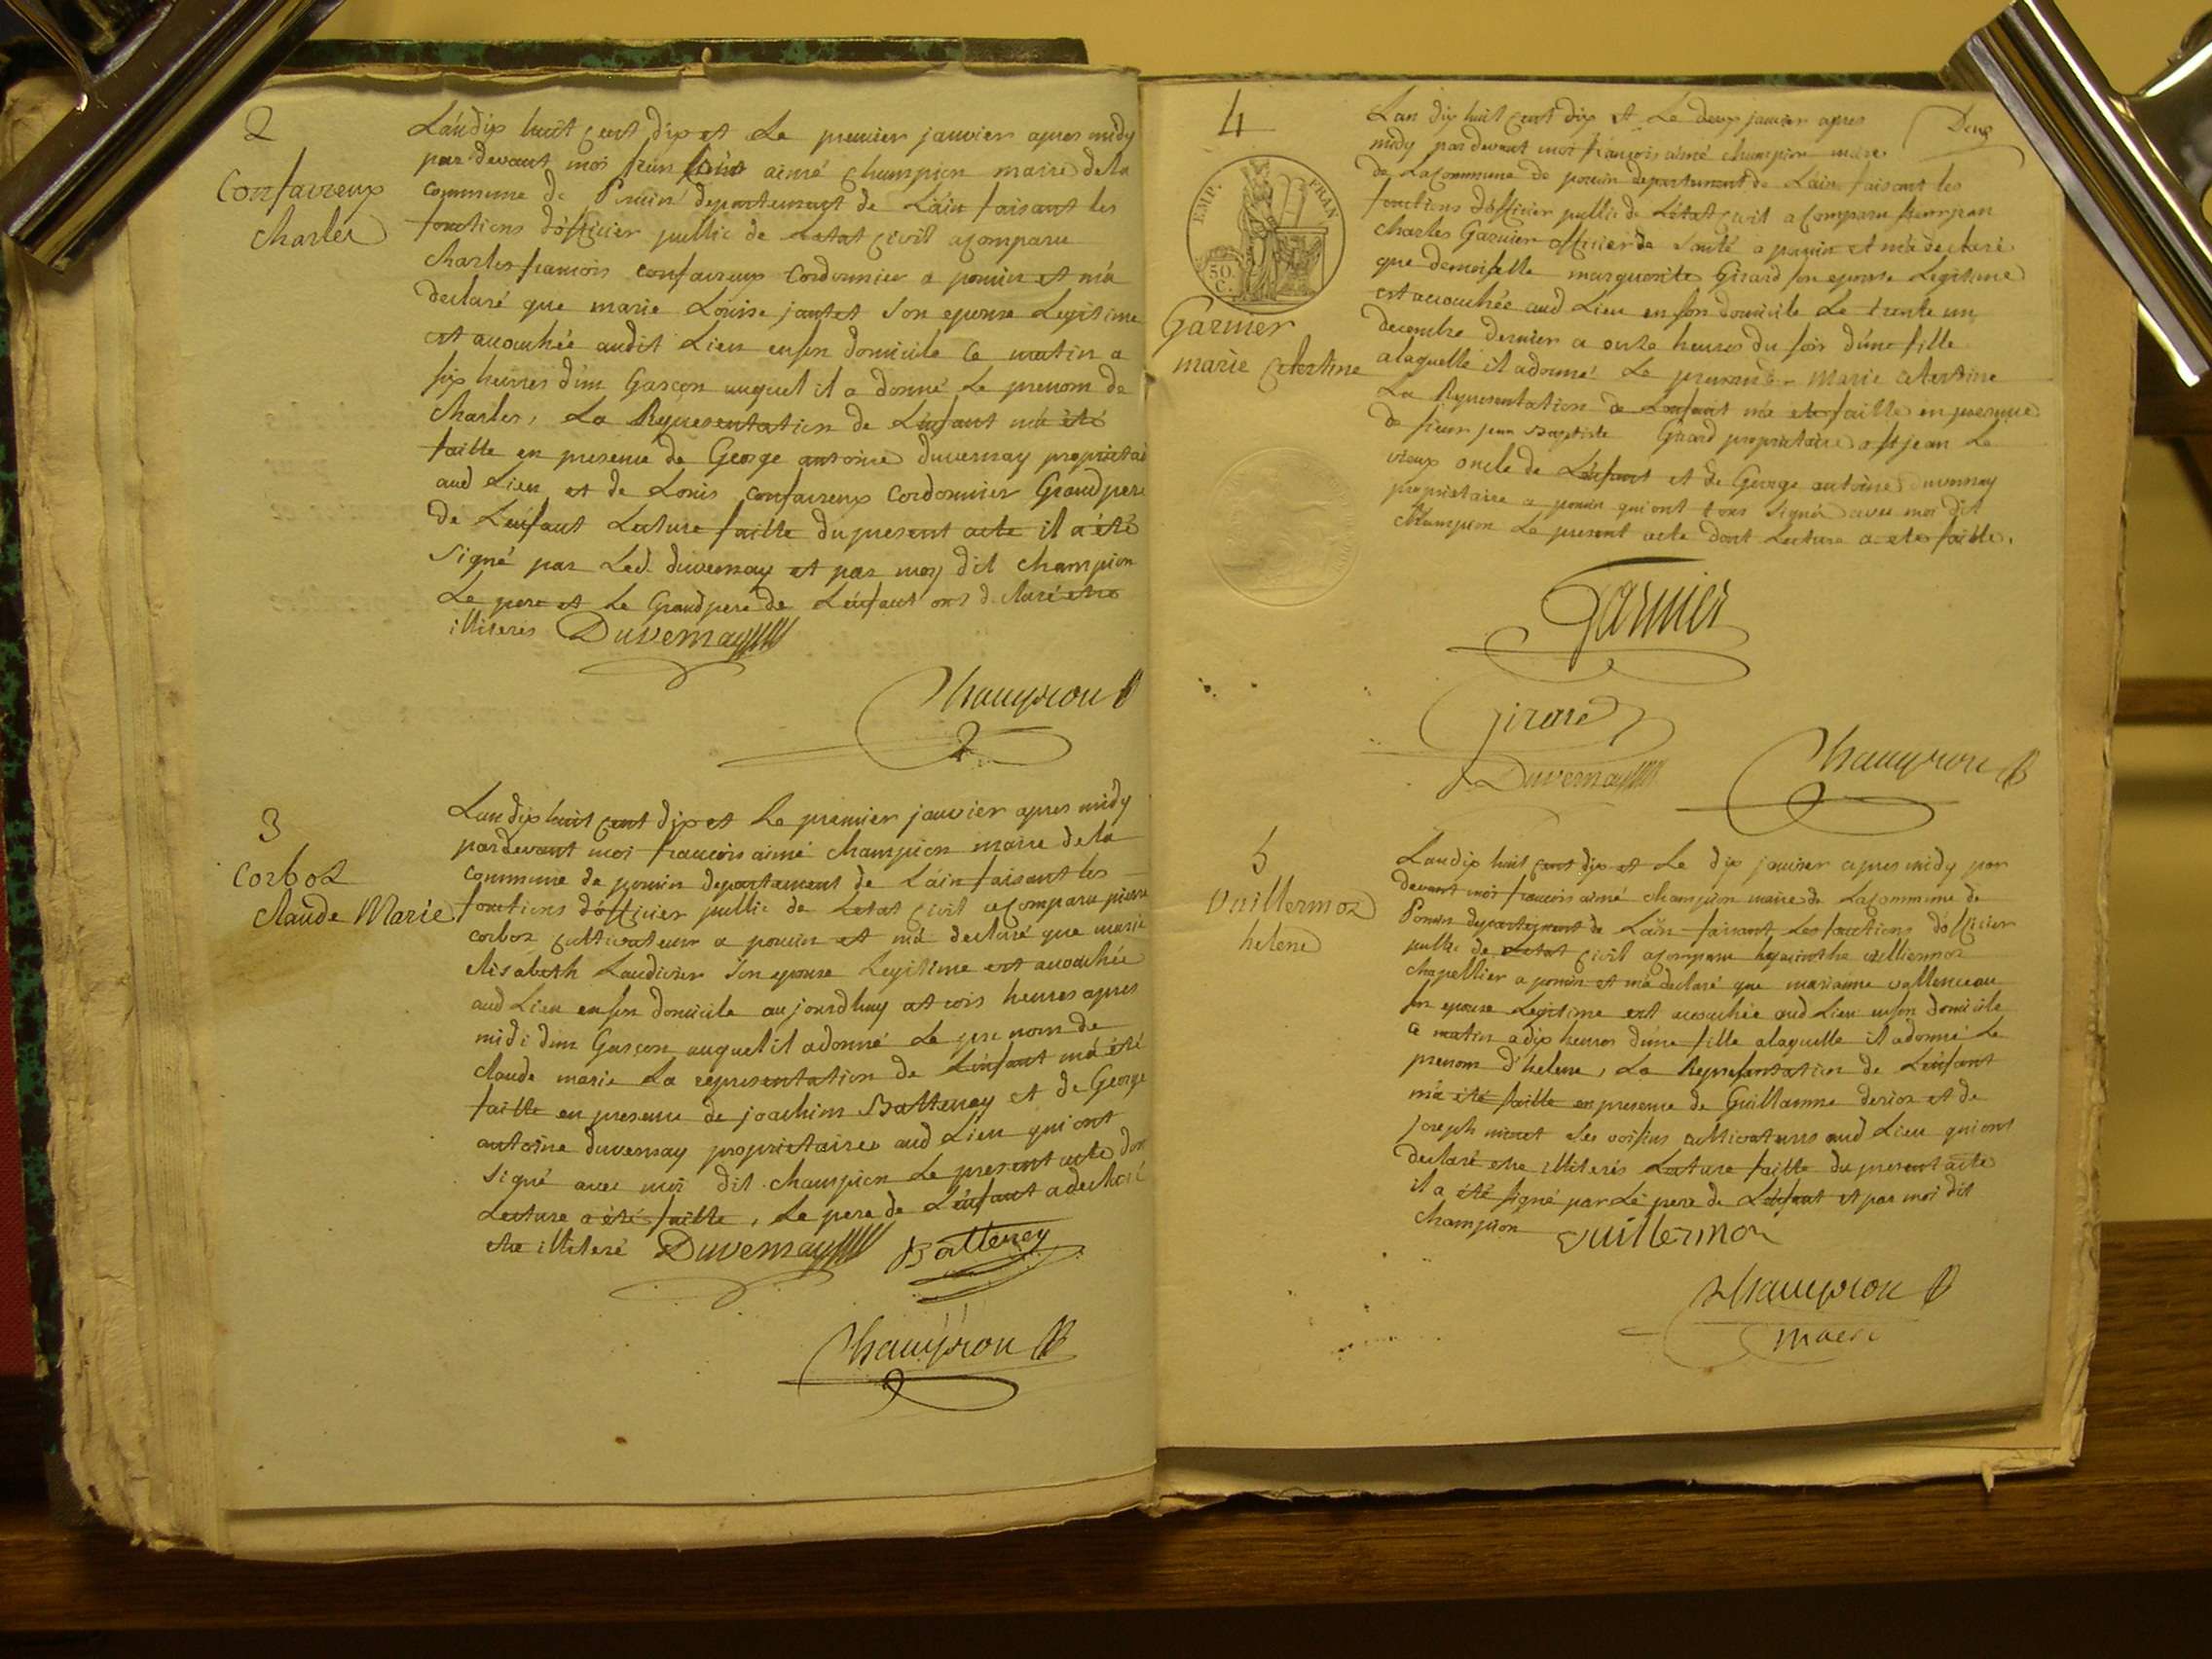 2
Confavreux
Charles
L'an dix huit cent dix et Le premier janvier apres midy
par devant moi aimé champion maire de la
commune de Poncin departement de L'ain faisant les
fonctions d'officier public de Letat civil a comparu
Charles francois confavreux Cordonnier a poncin et m'a
declaré que marie Louise jantet son epouse Legitime
est accouchée audit Lieu en son domicile ce matin a
six heures d'un Garçon auquel il a donné Le prenom de
Charles, La Representation de L'enfant m'a été
faitte en presence de George antoine duvernay proprietai
aud Lieu et de Louis confavreux Cordonnier Grand pere
de L'enfant Lecture faitte du present acte il a été
Signé par Led. duvernay et par moy dit champion
Le pere et Le Grand pere de L'enfant ont declaré etre
illiterés Duvernay
Champion
3
Corboz
Claude Marie
L'an dix huit cent dix et Le premier janvier apres midy
pardevant moi francois aimé champion maire de la
commune de poncin departement de L'ain faisant les
fonctions d'officier public de Letat civil a comparu pierre
corboz cultivateur a poncin et m'a declaré que marie
elisabeth Laudivier son epouse Legitime est accouchée
aud Lieu en son domicile aujourdhuy a trois heures apres
midi d'un Garçon auquel il a donné Le prenom de
claude marie La representation de L'enfant m'a été
faitte en presence de joachim Battenay et de George
antoine duvernay proprietaires aud Lieu qui ont
Signé avec moi dit champion Le present acte don
Lecture a été faitte, Le pere de L'enfant a declaré
etre illiteré Duvernay Batteney
Champion
4
Deux
EMP. FRAN
50. C.
Garnier
marie Celestine
L'an dix huit cent dix et Le deux janvier apres
midy par devant moi françois aimé champion maire
de La Commune de poncin departement de L'ain faisant les
fonctions d'officier public de L'etat civil a Comparu sieur jean
Charles Garnier officier de Santé a poncin et m'a declaré
que demoiselle marguerite Girard son epouse Legitime
est accouchée aud Lieu en son domicile Le trente un
decembre dernier a onze heures du soir d'une fille
a laquelle il a donné Le prenom de Marie celestine
La Representation de L'enfant m'a ete faitte en presence
de sieur jean Baptiste Girard proprietaire a st jean Le
vieux oncle de L'enfant et de George antoine duvernay
proprietaire a poncin qui ont tous Signé avec moi dit
Champion Le present acte dont Lecture a ete faitte.
Garnier
Girard
Duvernay
Champion
5
Vuillermoz
helene
L'an dix huit cent dix et Le dix janvier apres midy par
devant moi francois aimé champion maire de La Commune de
Poncin departement de L'ain faisant Les fonctions d'officier
public de Letat civil a comparu hyacinthe vuillermoz
chapellier a poncin et m'a declaré que marianne
son epouse Legitime est accouchée aud Lieu en son domicile
ce matin a dix heures d'une fille a laquelle il a donné Le
prenom d'helene, La Representation de L'enfant
m'a été faitte en presence de Guillaume et de
joseph ses voisins cultivateurs aud Lieu qui ont
declaré etre illiterés Lecture faitte du present acte
il a été signé par Le pere de L'enfant et par moi dit
Champion Vuillermoz
Champion
maire